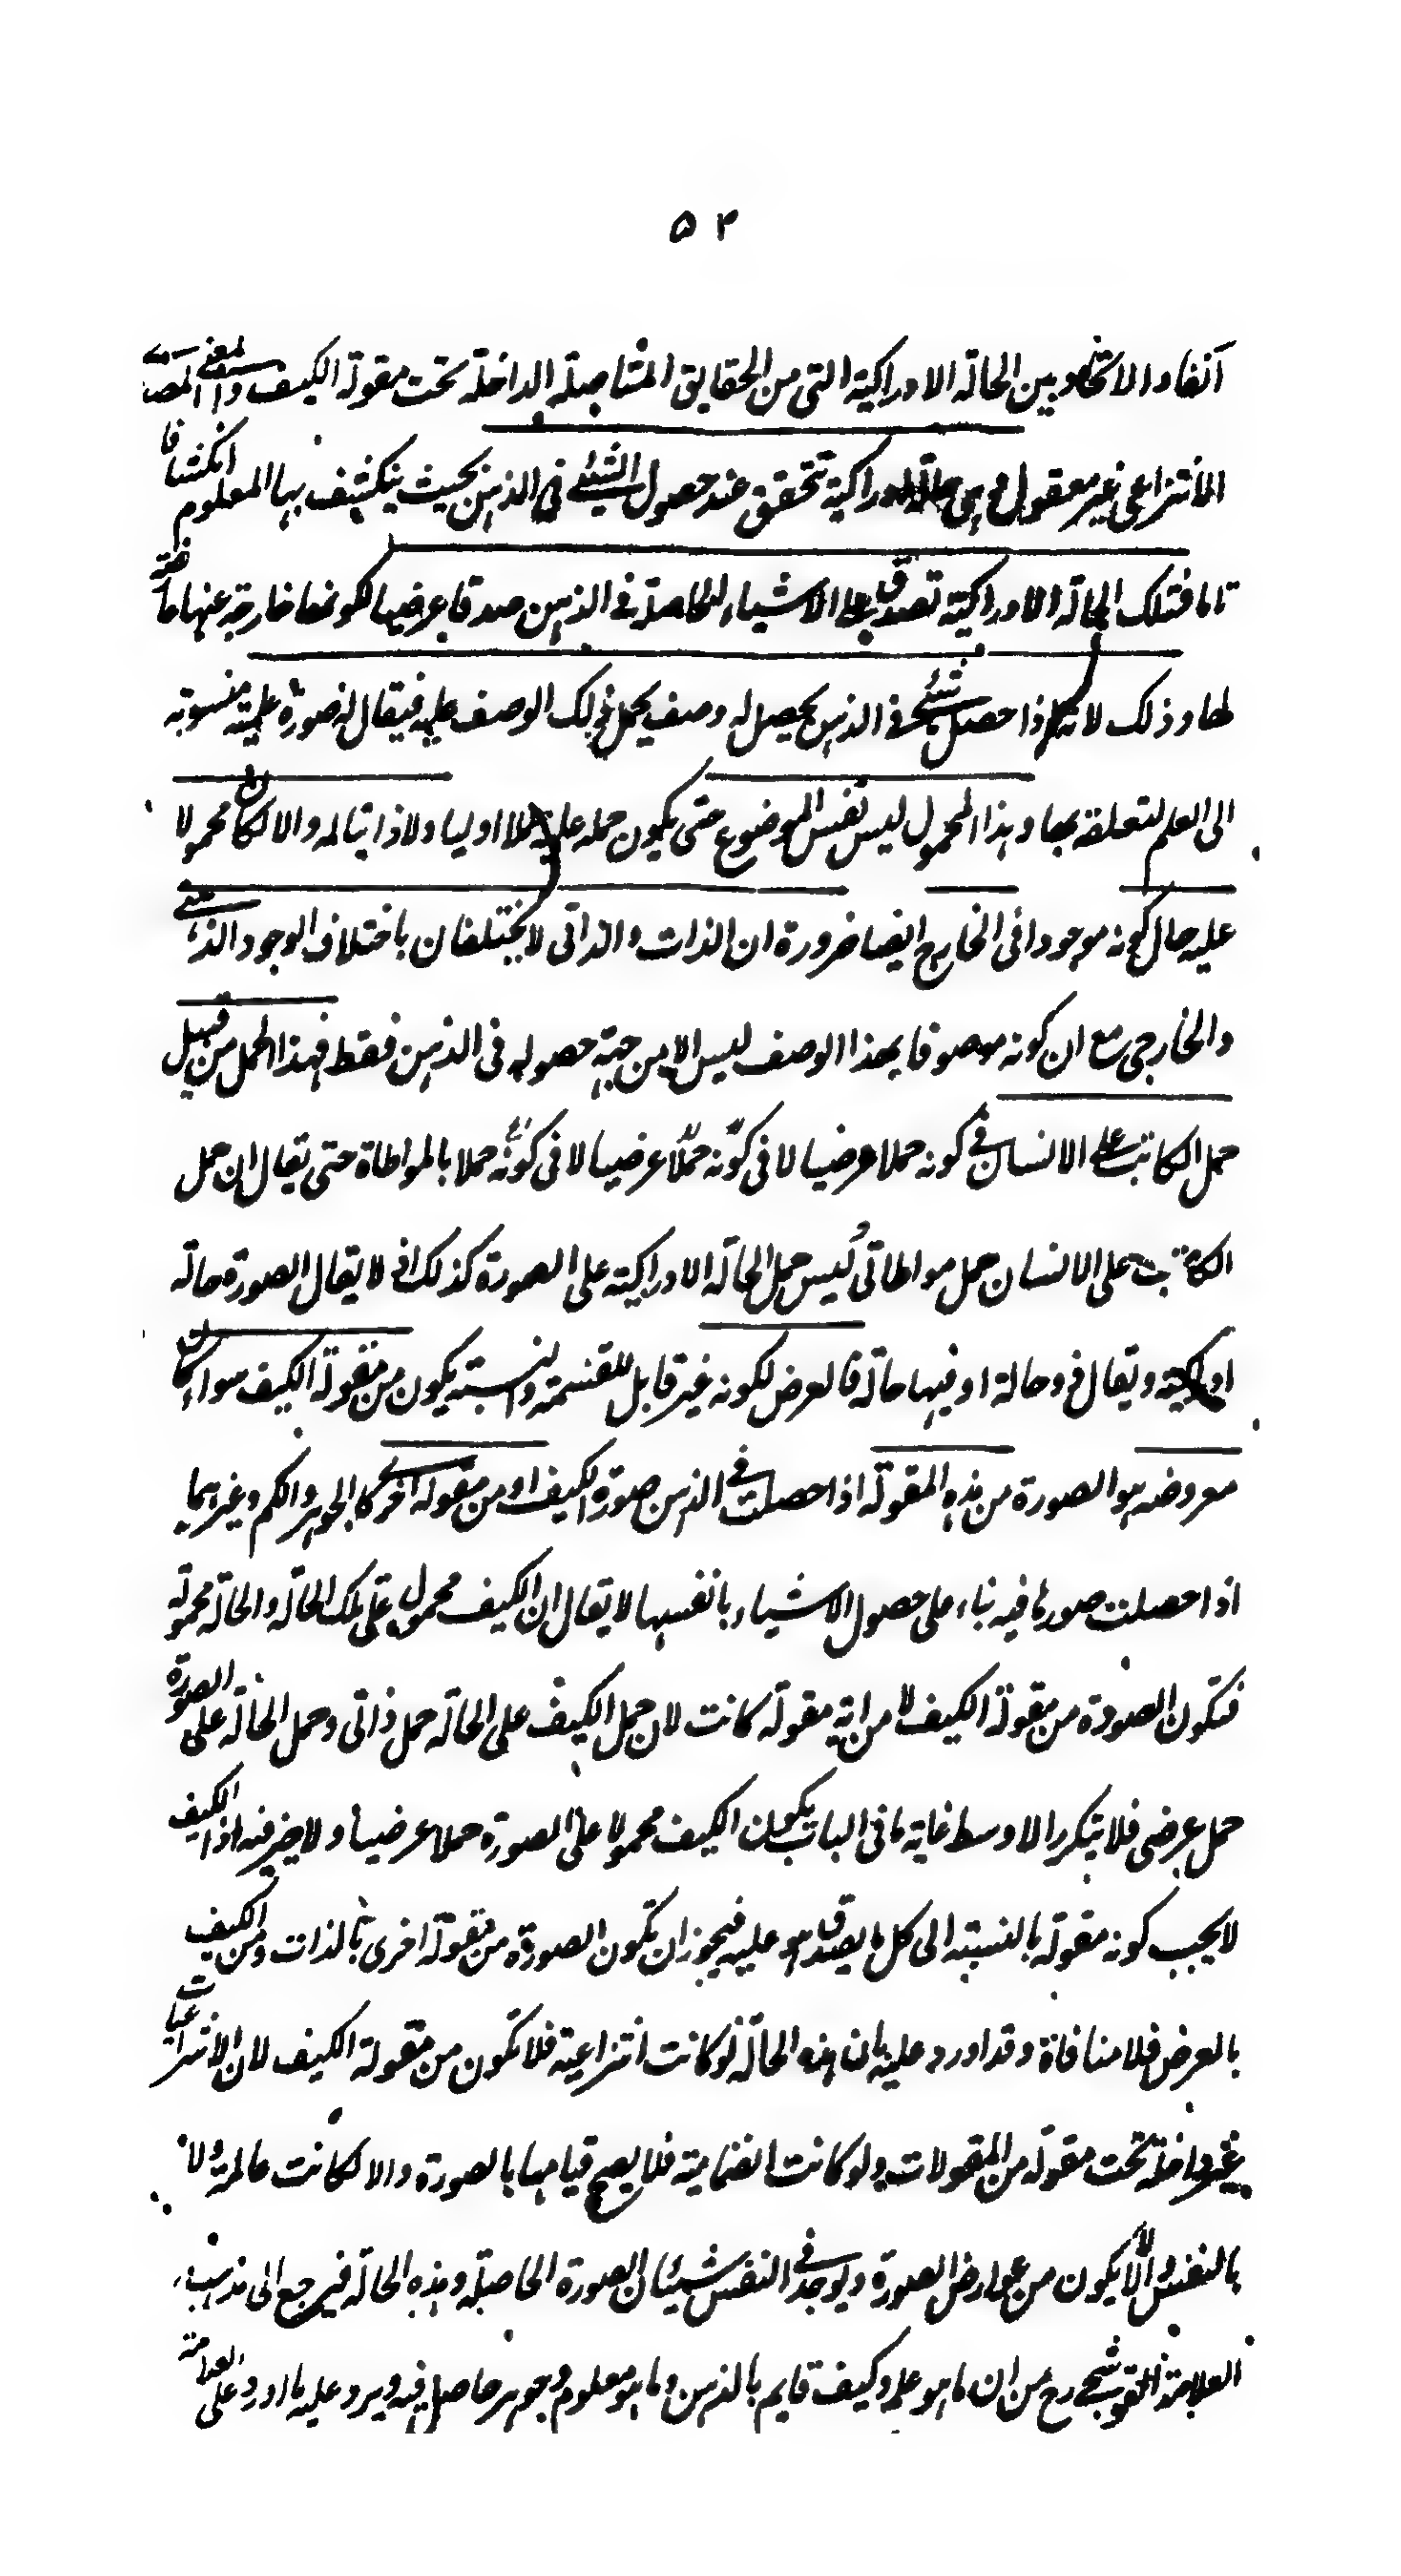 ۵۲
آنفا والاتحاد بين الحالة الادراكية التى من الحقايق المتاصلة الداخلة تحت مقولة الكيف والمعنى المصدرى
الانتزاعى غير معقول وهى حالة ادراكية تتحقق عند حصول الشئ فى الذهن بحيث ينكشف بها المعلوم انكشافا
تاما فتلك الحالة الادراكية تصدق على الاشياء الحاصلة فى الذهن صدقا عرضيا لكونها خارجة عنها عارضة
لها وذلك لانه اذا حصل شئ فى الذهن يحصل له وصف يحمل ذلك الوصف عليه فيقال له صورة علمية منسوبة
الى العلم لتعلقه بها وهذا المحمول ليس نفس الموضوع حتى يكون حمله عليه حملا اوليا ولا ذاتيا له والا لكان محمولا
عليه حال كونه موجودا فى الخارج ايضا ضرورة ان الذات والذاتى لا يختلفان باختلاف الوجود الذهنى
والخارجى مع ان كونه موصوفا بهذا الوصف ليس الا من جهة حصوله فى الذهن فقط فهذا الحمل من قبيل
حمل الكاتب على الانسان فى كونه حملا عرضيا لا فى كونه حملا عرضيا لا فى كونه حملا بالمواطاة حتى يقال ان حمل
الكاتب على الانسان حمل مواطاتى وليس حمل الحالة الادراكية على الصورة كذلك اذ لا يقال الصورة حالة
ادراكية ويقال ذو حالة او فيها حالة فالعرض لكونه غير قابل للقسمة والنسبة يكون من مقولة الكيف سواء كان
معروضه هو الصورة من هذه المقولة اذا حصلت فى الذهن صورة الكيف او من مقولة اخرى كالجوهر والكم وغيرهما
اذا حصلت صورها فيه بناء على حصول الاشياء بانفسها لا يقال ان الكيف محمول على تلك الحالة والحالة محمولة
فتكون الصورة من مقولة الكيف لا من اية مقولة كانت لان حمل الكيف على الحالة حمل ذاتى وحمل الحالة على الصورة
حمل عرضى فلا يتكرر الاوسط غاية ما فى الباب يكون الكيف محمولا على الصورة حملا عرضيا ولا ضير فيه اذ الكيف
لا يجب كونه مقولة بالنسبة الى كل ما يصدق هو عليه فيجوز ان تكون الصورة من مقولة اخرى بالذات ومن الكيف
بالعرض فلا منافاة وقد اورد عليه بان هذه الحالة لو كانت انتزاعية فلا تكون من مقولة الكيف لان الانتزاعيات
غير داخلة تحت مقولة من المقولات ولو كانت انضمامية فلا يصح قيامها بالصورة والا لكانت عالمة ولا
بالنفس والا لا يكون من عوارض الصورة ويوجد فى النفس شيئان الصورة الحاصلة وهذه الحالة فيرجع الى مذهب
العلامة القوشجى رح من ان ما هو علم وكيف قايم بالذهن وما هو معلوم وجوهر حاصل فيه ويرد عليه ما اورد على العلامة